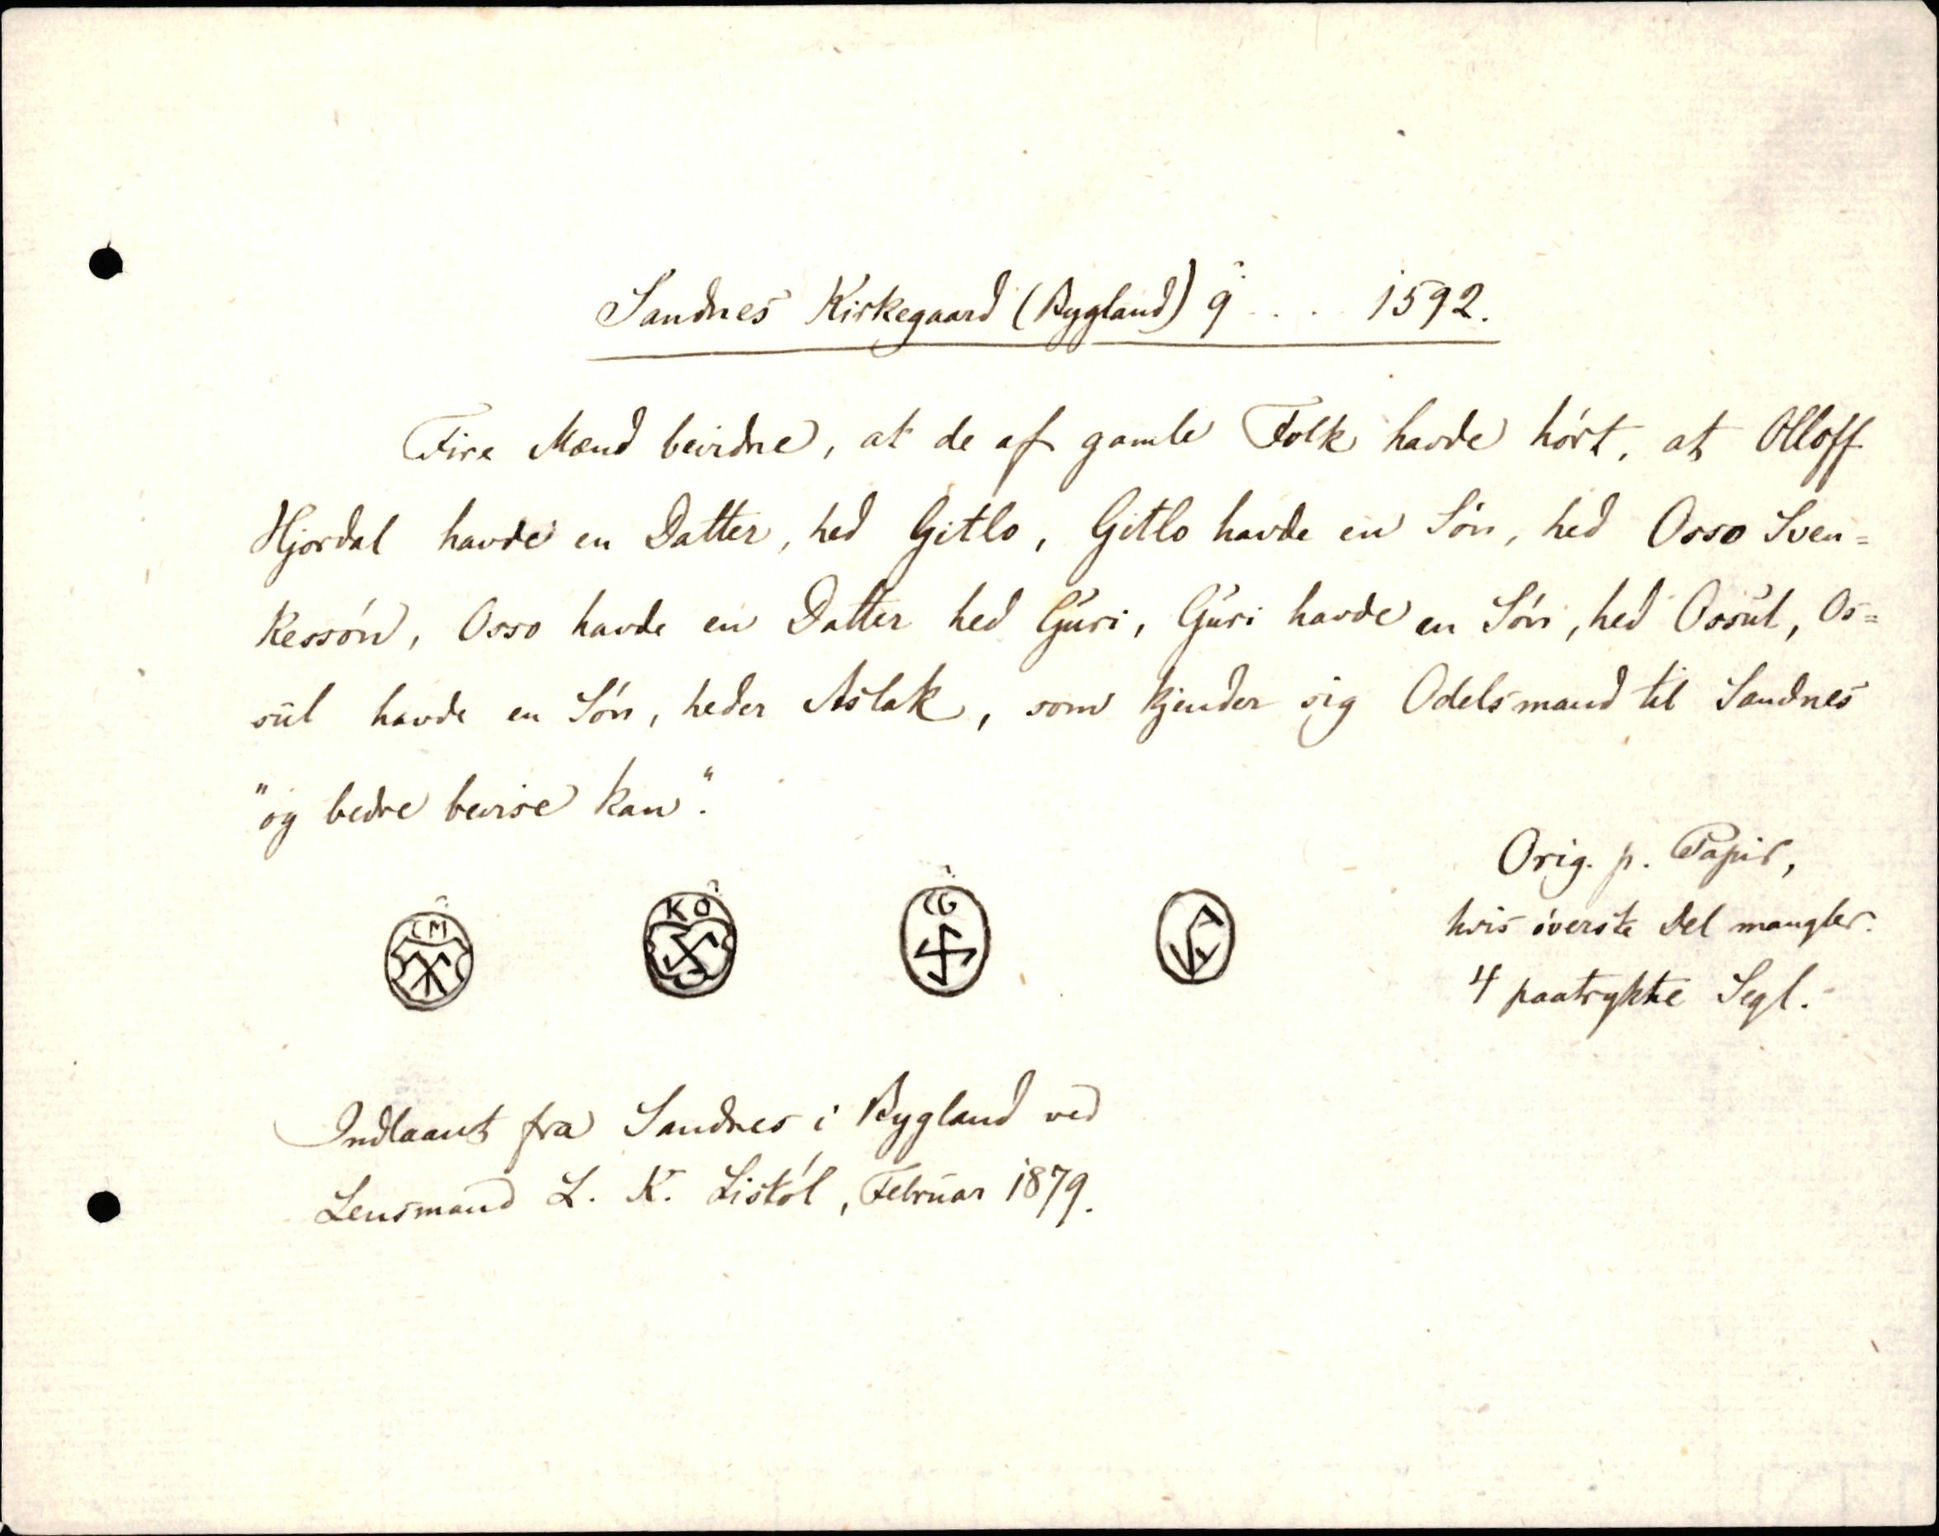 Sandnes Kirkegaard (Bygland) 9 . . . 1592.
Fire Mænd bevidne, at de af gamle Folk havde hört, at Olloff
Hjordal havde en Datter, hed Gitlo, Gitlo havde en Sön, hed Osso Sven=
kessön, Osso havde en Datter hed Guri, Guri havde en Sön, hed Ossul, Os=
sul havde en Sön, heder Aslak, som kjender sig Odelsmand til Sandnes
"og bedre bevise kan".
Orig. p. Papir,
hvis överste Del mangler.
4 paatrykte Segl.
CM
KO
CG
Indlaant fra Sandnes i Bygland ved
Lensmand L. K. Listöl, Februar 1879.